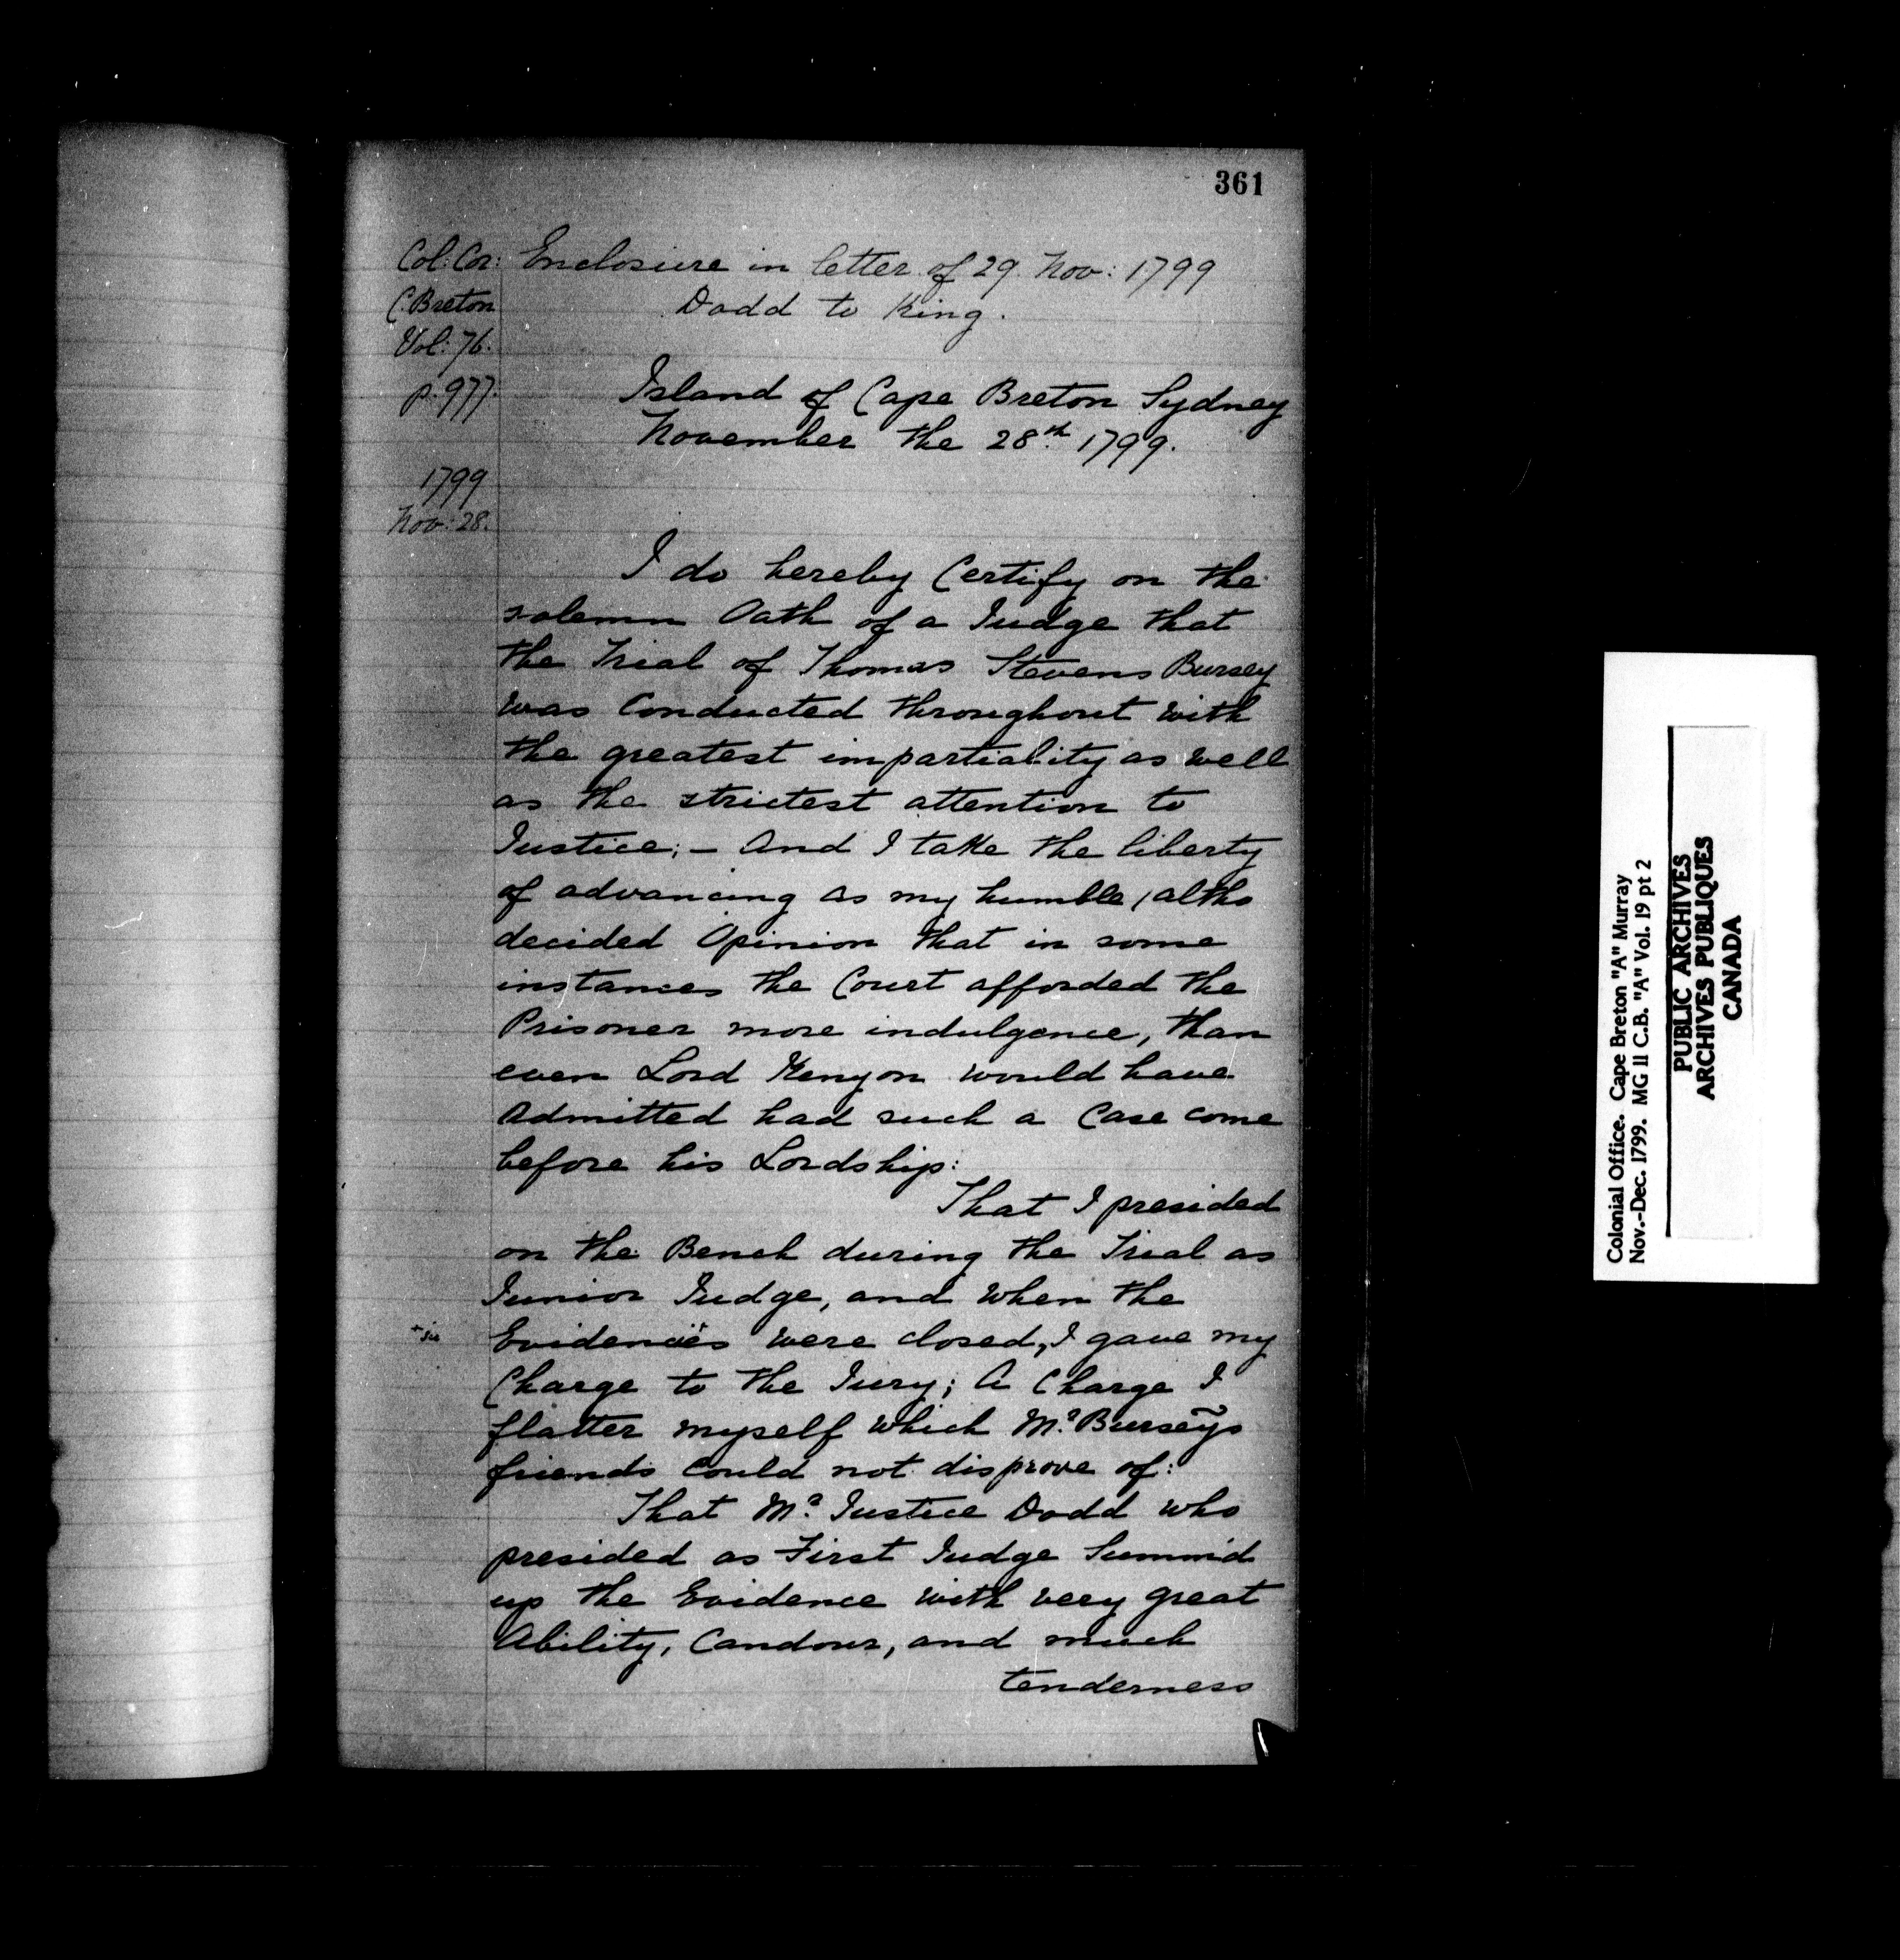 361
Col: Cor: Enclosure in letter of 29 Nov: 1799
C. Breton Dodd to King.
Vol: 76.
p. 977. Island of Cape Breton Sydney
November the 28th 1799.
1799
Nov: 28.
I do hereby Certify on the
solemn Oath of a Judge that
the Trial of Thomas Stevens Bursey
was Conducted throughout with
the greatest impartiality as well
as the strictest attention to
Justice; – And I take the liberty
of advancing as my humble (altho
decided Opinion that in some
instances the Court afforded the
Prisoner more indulgence, than
even Lord Kenyon would have
Admitted had such a Case come
before his Lordship:
That I presided
on the Bench during the Trial as
Junior Judge, and when the
+ sic Evidences were closed, I gave my
Charge to the Jury; A Charge I
flatter myself which Mr. Bursey's
friends Could not disprove of:
That Mr. Justice Dodd who
presided as First Judge Summ'd
up the Evidence with very great
Ability, Candour, and much
tenderness
Colonial Office. Cape Breton "A" Murray
Nov.-Dec. 1799. MG 11 C.B. "A" Vol. 19 pt 2
PUBLIC ARCHIVES
ARCHIVES PUBLIQUES
CANADA